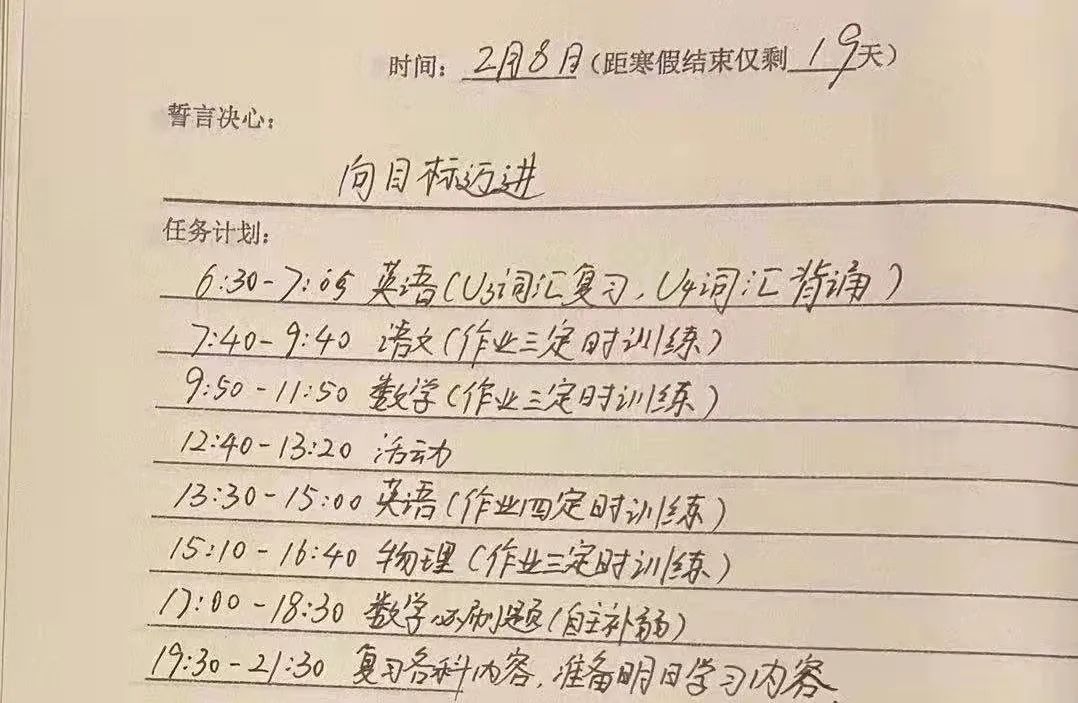 时间：2月8日（距寒假结束仅剩19天）
誓言决心：
向目标迈进
任务计划：
6:30-7:05 英语（U3词汇复习，U4词汇背诵）
7:40-9:40 语文（作业三定时训练）
9:50-11:50 数学（作业三定时训练）
12:40-13:20 活动
13:30-15:00 英语（作业四定时训练）
15:10-16:40 物理（作业三定时训练）
17:00-18:30 数学必刷题（自主补弱）
19:30-21:30 复习各科内容，准备明日学习内容.